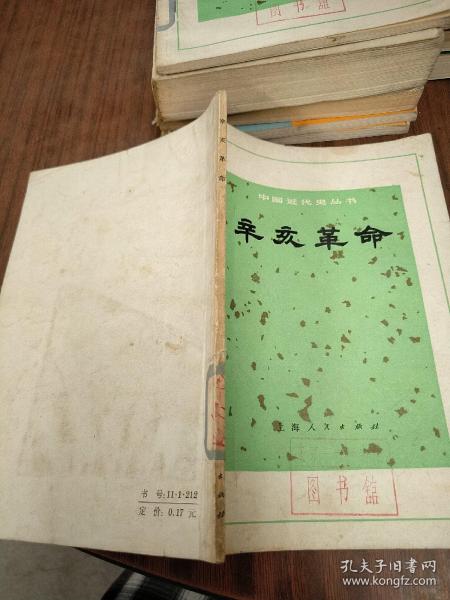 图书馆
中国近代史丛书
辛亥革命
上海人民出版社
图书馆
辛亥革命
出版社
书号:11·1·212
定价:0.17元
孔夫子旧书网
www.kongfz.com